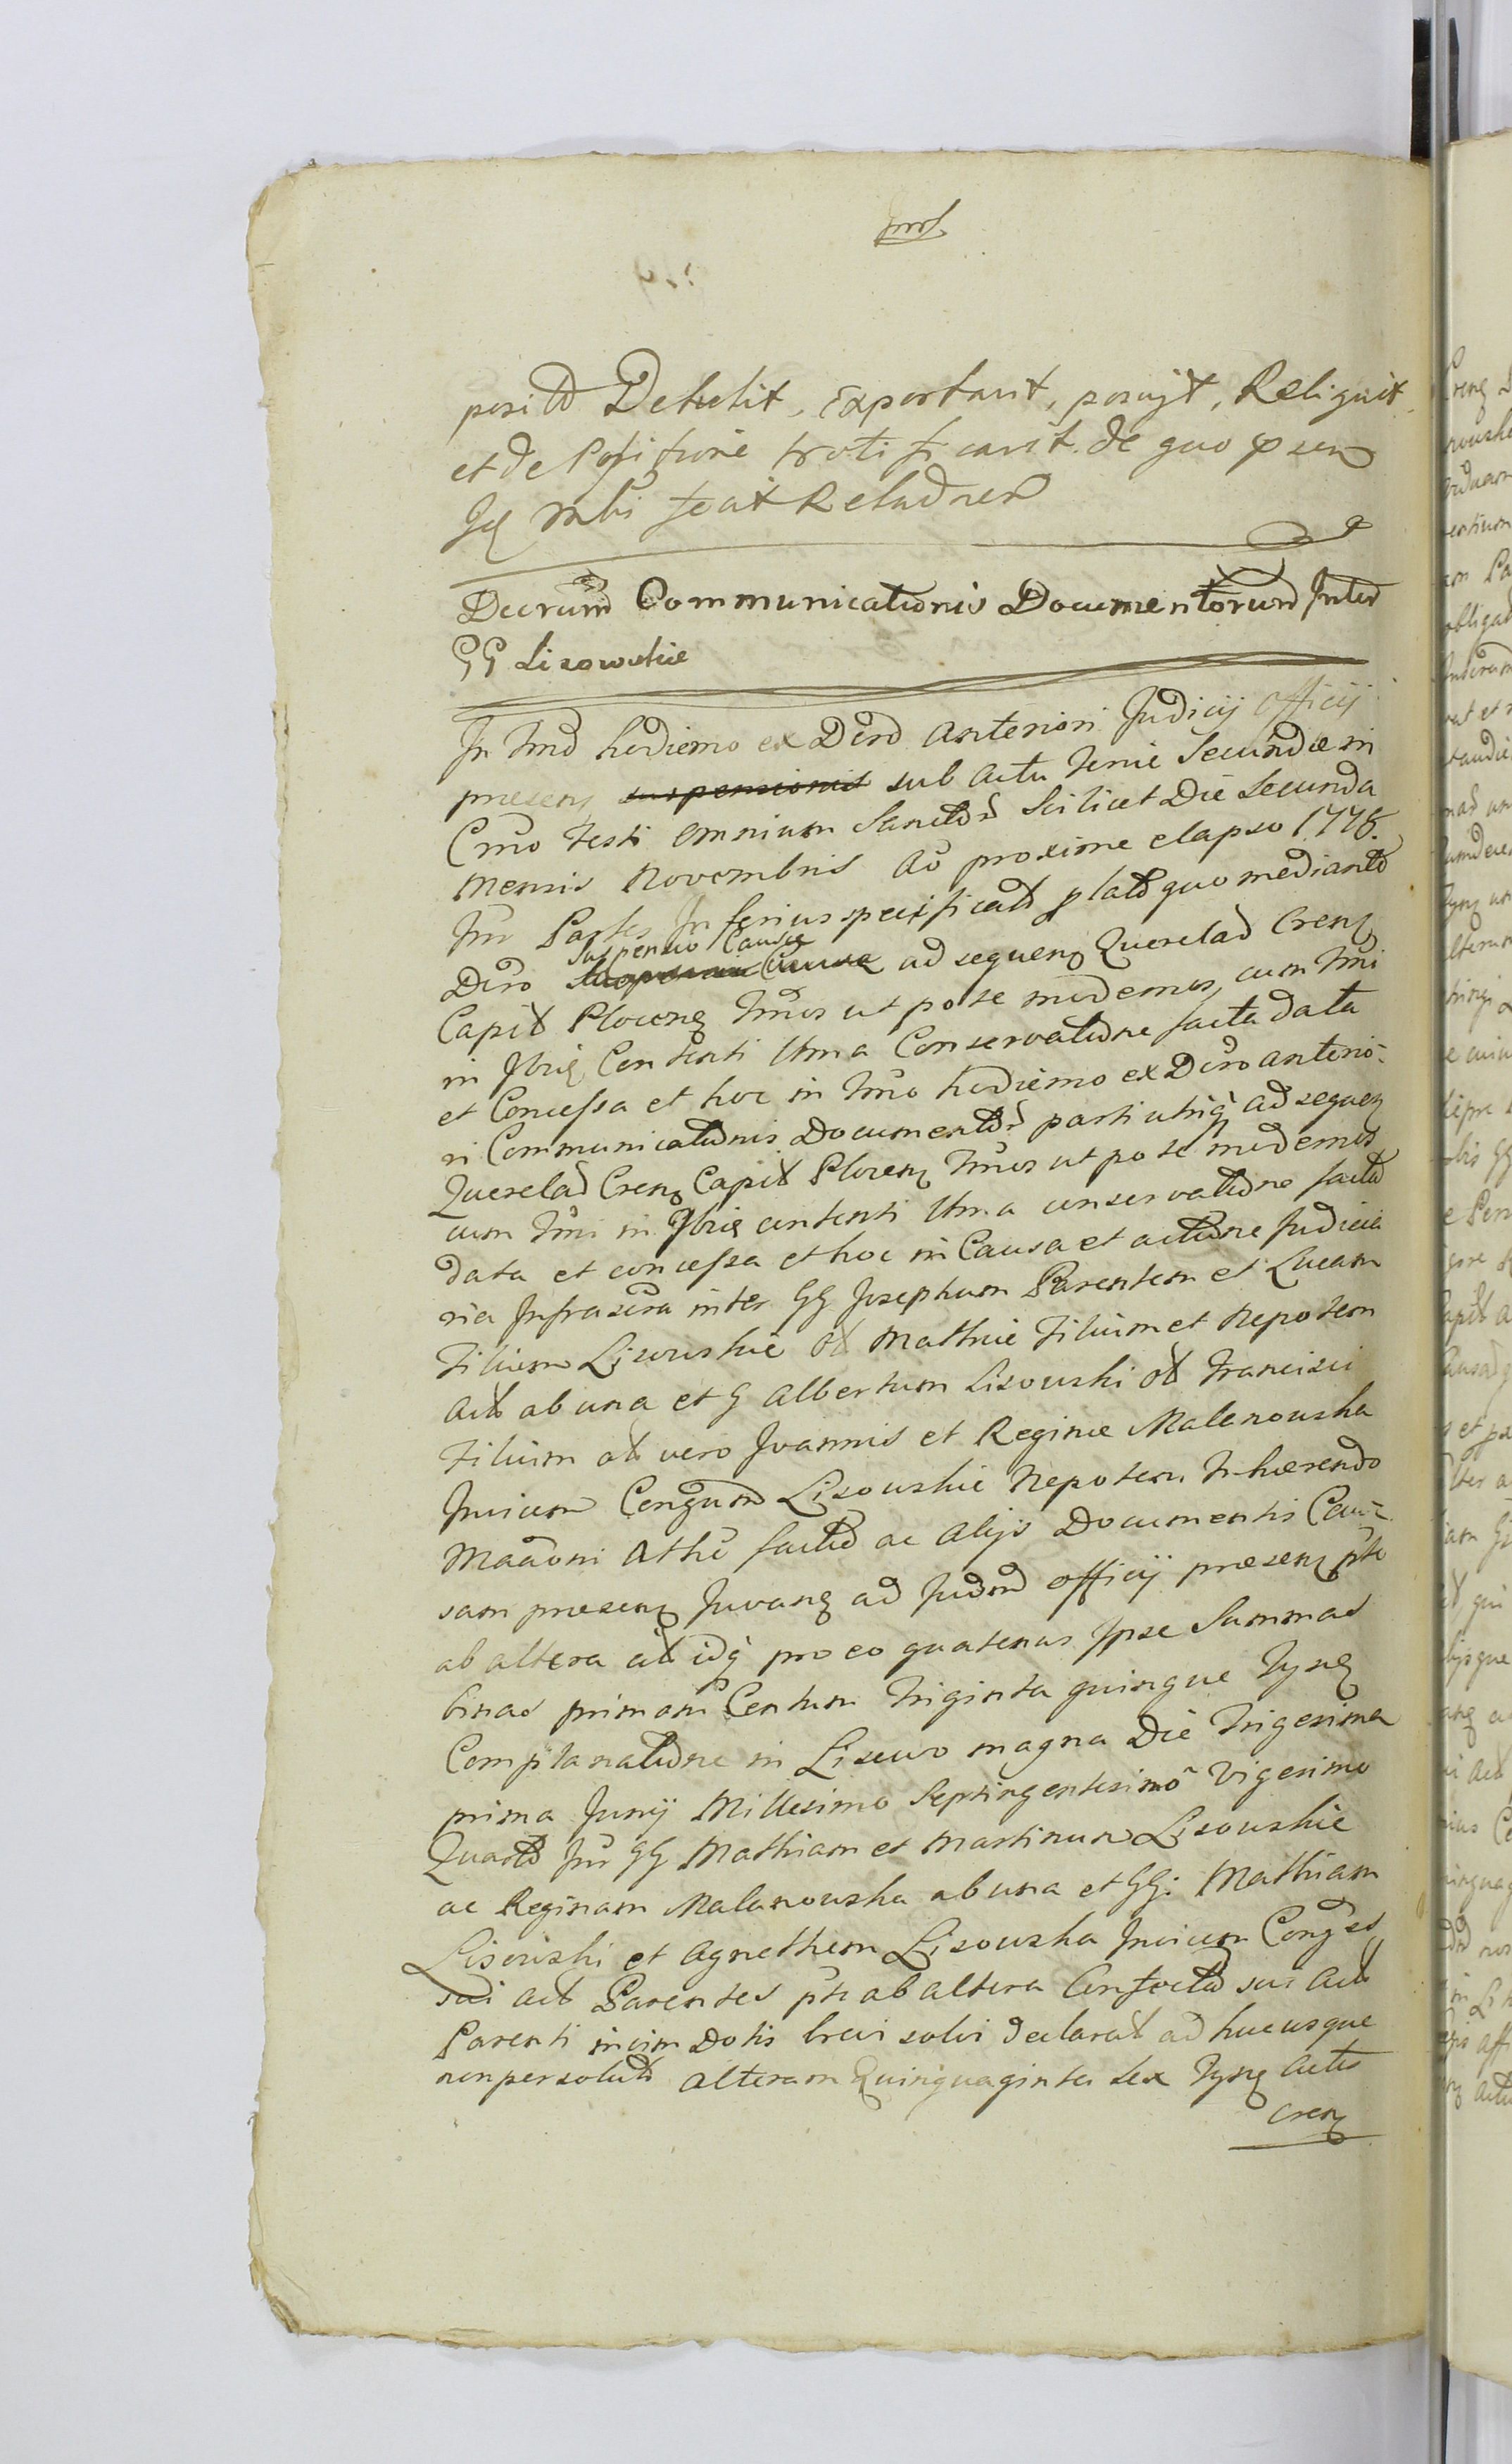 positd Detulit, Exportavit, posuijt, Reliquit
et de Positione notificavit. de quo psen
Jq mhi fecit Reladnem
Decrum Communicationis Documentorum Inter
GG Lisowskie
In Tmo hodierno ex Dcro anteriori Judicij officij
presenz suspensionis sub actu Feriæ Secundæ in
Crno Festi omnium Sanctor Scilicet Die Secunda
Mensis Novembris Ao proxime elapso 1778.
Inr Partes Inferius specificats plato quo mediante
Suspensio Causæ
Dcro Causæ ad sequenz Querelad Crenz
Capit Plocenz Tmos ut pote mdernos, cum Tmi
in Jbriq Contenti Utma Conservatione facta data
et Concessa et hoc in Tmo hodierno ex Dcro anterio-
ri Communicationis Documentor parti utriq ad sequenz
Querelad Crenz Capit Plocenz Tmos ut pote mdernos
cum Tmi in Jbriq contenti Utma conservatione facta
data et concessa et hoc in Causa et actione Judicia
ria Infrascra inter GG Josephum Parentem et Lucam
Filium Lisowskie ol Mathiæ Filium et Nepotem
Act ab una et G Albertum Lisowski ol Francisci
Filium ol vero Joannis et Reginæ Malanowska
Invicem Congum Lisowskie Nepotem Inhærendo
Maaoni Athu factæ ac alijs Documentis Cau-
sam presenz Juvanz ad Judm officij præsenz pte
ab altera cit idq pro eo quatenus Ipse Summas
binas primam Centum Triginta quinque Tynz
Complanatione in Lisewo magna Die Trigesima
prima Junij Millesimo Septingentesimo Vigesimo
Quarto Inr GG Mathiam et Martinum Lisowskie
ac Reginam Malanowska ab una et GG: Mathiam
Lisowski et Agnethem Lisowska Invicem Conges
sui act Parentes pte ab altera Confecta sui Act
Parenti in vim Dotis brevi solvi declarat ad hucusque
non persolut alteram Quinquaginta sex Tynz Actis
Crenz